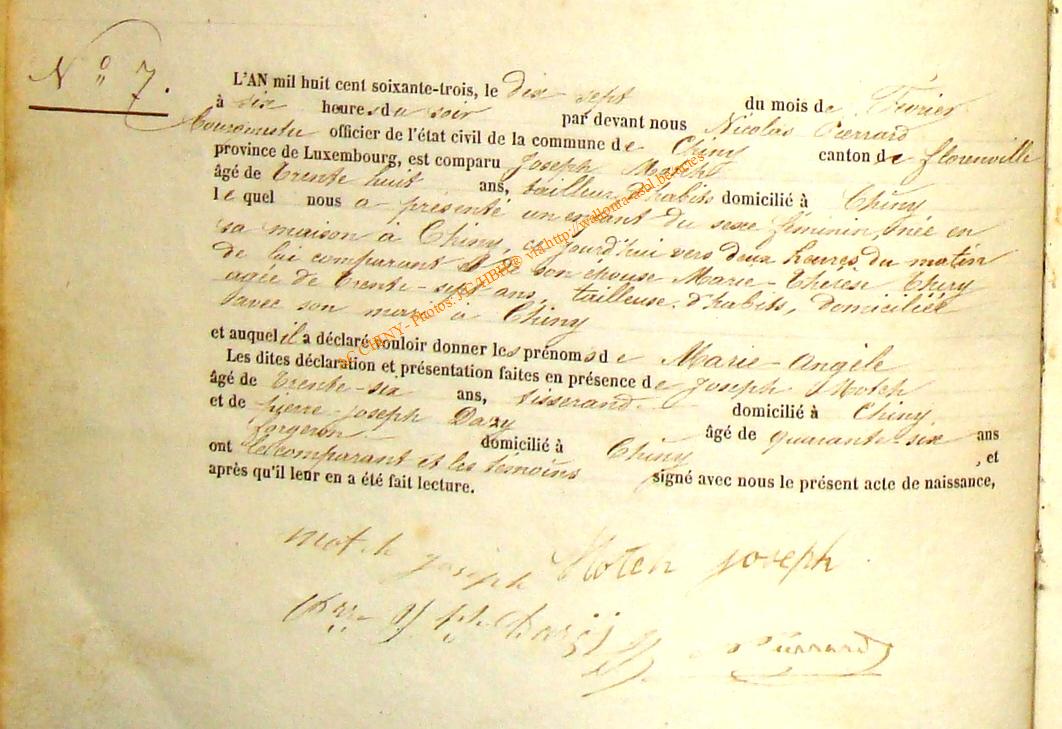 N° 7.
L'AN mil huit cent soixante-trois, le dix sept du mois de Février
à six heures du soir par devant nous Nicolas Pierrard
Bourgmestre officier de l'état civil de la commune de Chiny canton de florenville
province de Luxembourg, est comparu Joseph Motch
âgé de Trente huit ans, tailleur d'habits domicilié à Chiny
le quel nous a présenté un enfant du sexe féminin, née en
sa maison à Chiny, ce jourd'hui vers deux heures du matin
de lui comparant & de son épouse Marie-Thérèse Thiry
agée de Trente-sept ans, tailleuse d'habits, domiciliée
avec son mari à Chiny
et auquel il a déclaré vouloir donner les prénoms de Marie-Angèle
Les dites déclaration et présentation faites en présence de Joseph Motch
âgé de Trente-six ans, tisserand domicilié à Chiny
et de pierre-joseph Dazy âgé de quarante-six ans
forgeron domicilié à Chiny, et
ont le comparant et les témoins signé avec nous le présent acte de naissance,
après qu'il leur en a été fait lecture.
motch joseph Motch joseph
Pierrard
AC CHINY - Photos: JC/HBE® via http://wallonia-asbl.be/cries